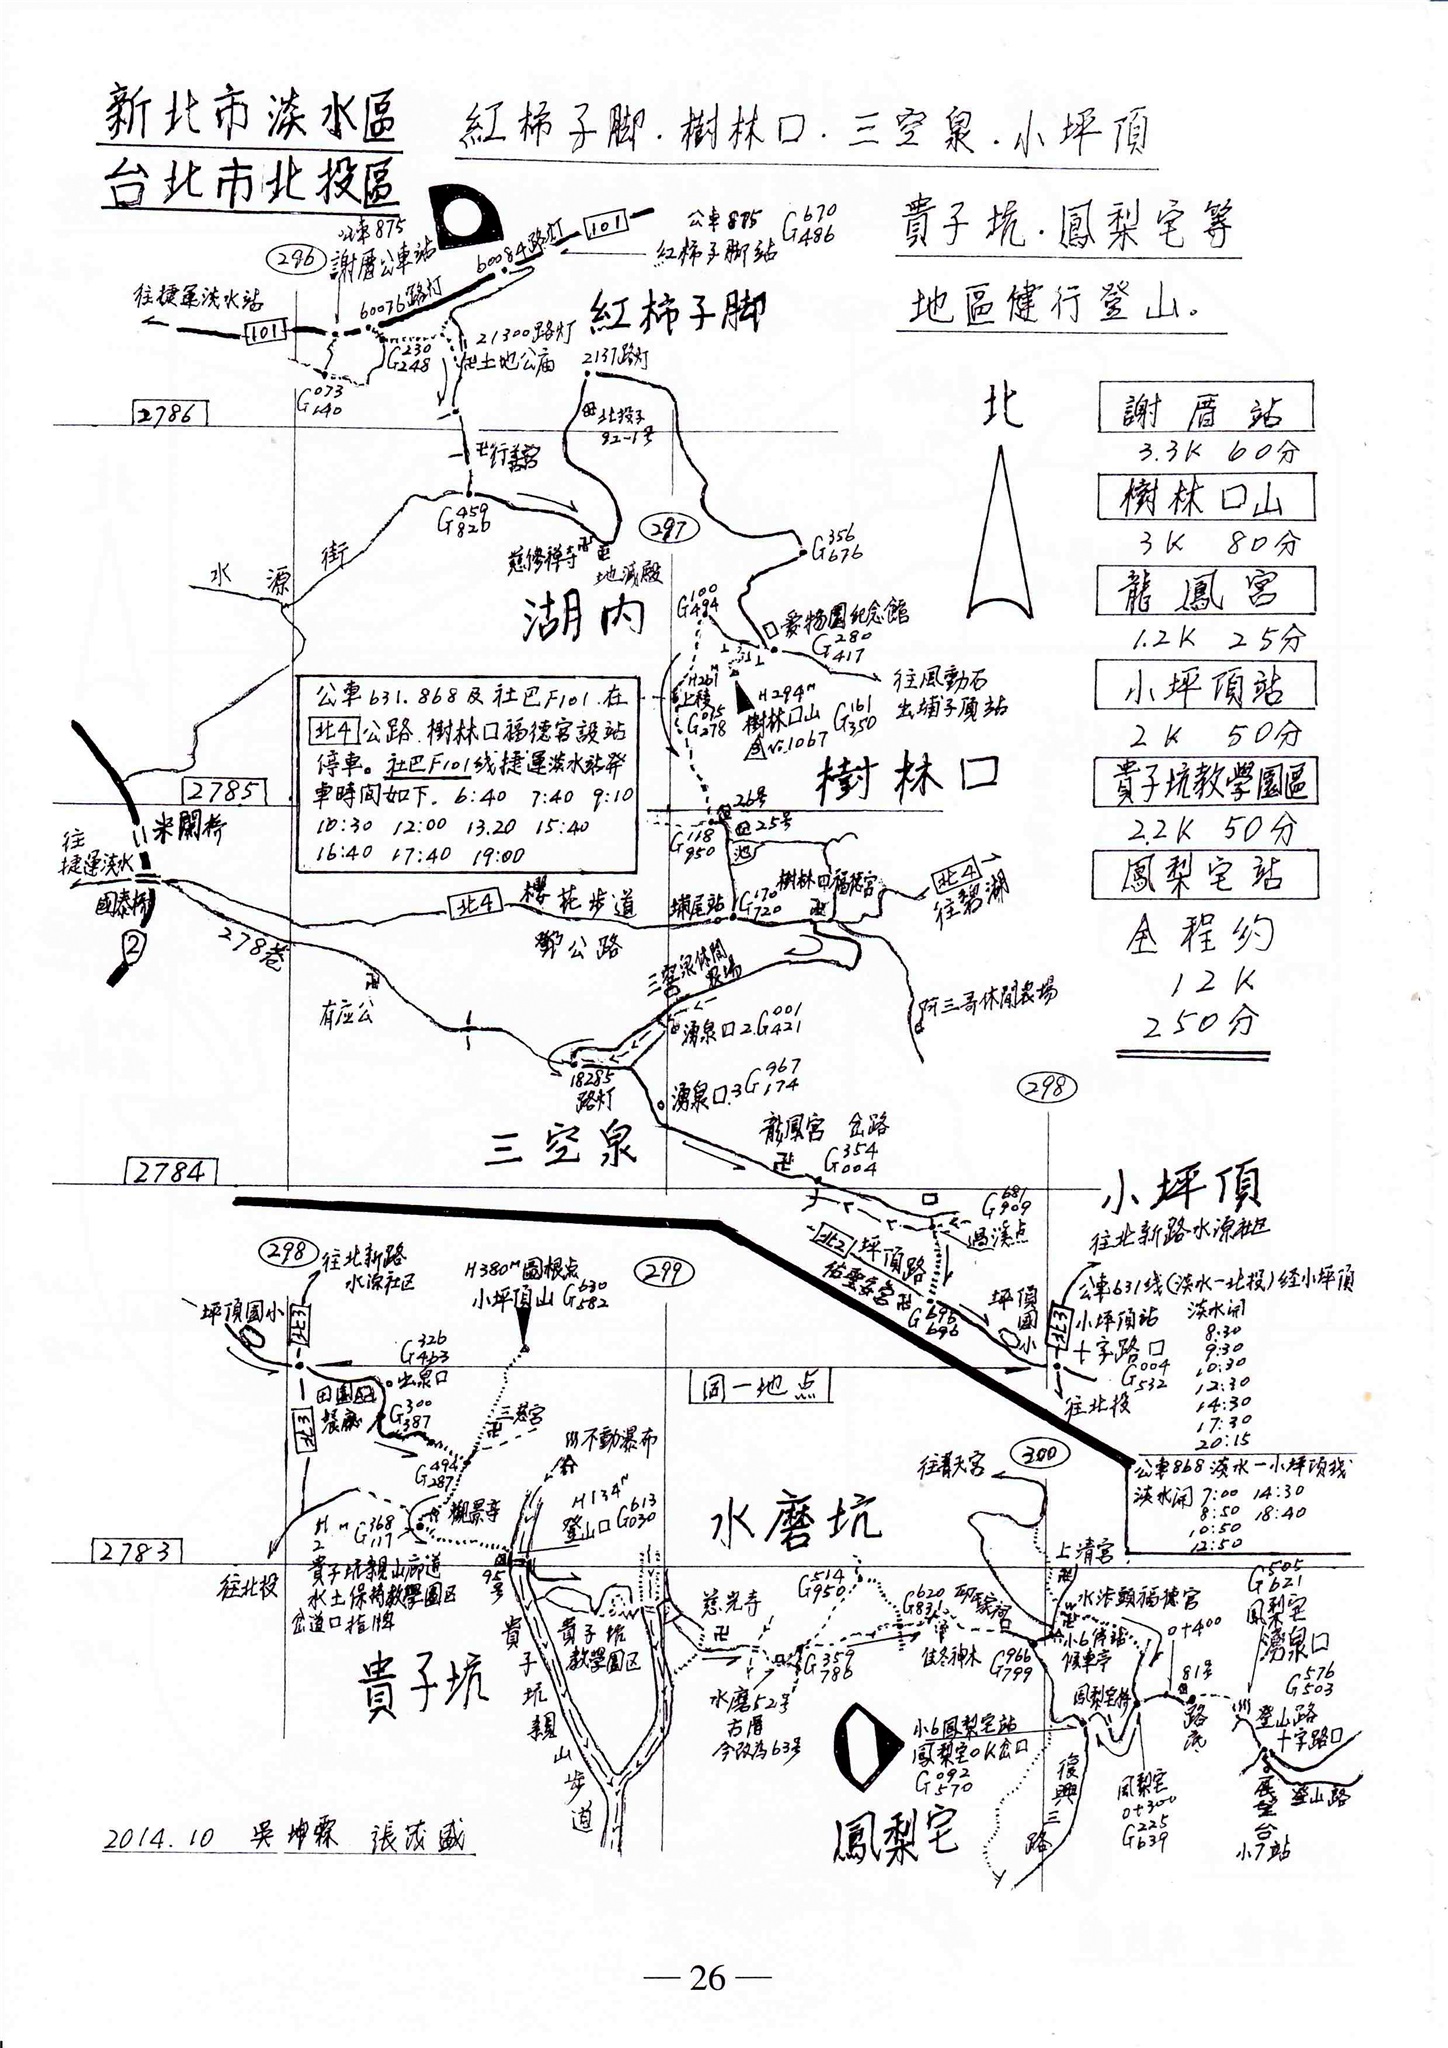 新北市淡水區
台北市北投區
紅柿子脚.樹林口.三空泉.小坪頂
貴子坑.鳳梨宅等
地區健行登山.
公車875
謝厝公車站
296
60084路灯
101
公車875
紅柿子脚站
G670
486
往捷運淡水站
101
60076路灯
紅柿子脚
G230
248
21300路灯
卍土地公庙
2137路灯
G073
140
2786
北投子
92-1号
卍行善宮
G459
826
297
慈修禅寺卍
地滅殿
G356
676
水源街
湖内
G100
494
G280
417
往風動石
出埔子頂站
H294M
樹林口山
No.1067
G161
350
H261M
上稜
G095
278
樹林口
公車631.868及社巴F101.在
北4公路.樹林口福德宮設站
停車。社巴F101线捷運淡水站発
車時间如下. 6:40 7:40 9:10
10:30 12:00 13.20 15:40
16:40 17:40 19:00
2785
26号
25号
池
G118
950
往
捷運淡水
米蘭桥
國泰桥
2
278巷
北4
櫻花步道
鄧公路
埔尾站
G170
720
樹林口福德宮
北4
往碧湖
有应公
卍
三空泉休閒
農場
湧泉口2.G001
421
阿三哥休閒农場
18285
路灯
湧泉口.3G967
174
298
三空泉
龍鳳宮
岔路
卍
G354
004
2784
G681
909
過溪点
小坪頂
往北新路水源社区
北2
坪頂路
佑聖安宮卍
G696
696
坪頂國小
北3
公車631线(淡水-北投)経小坪頂
小坪頂站
十字路口
G004
532
往北投
淡水開
8:30
9:30
10:30
12:30
14:30
17:30
20:15
公車868淡水-小坪頂线
淡水開 7:00 14:30
8:50 18:40
10:50
12:50
北
謝厝站
3.3K 60分
樹林口山
3K 80分
龍鳳宮
1.2K 25分
小坪頂站
2K 50分
貴子坑教學園區
2.2K 50分
鳳梨宅站
全程約
12K
250分
298
往北新路
水源社区
H380M圖根点
小坪頂山G630
582
299
坪頂國小
北3
G326
463
出泉口
同一地点
田園
餐廳
G300
387
北3
三慈宮
卍
G494
287
不動瀑布
H134M
登山口G613
030
觀景亭
G368
117
貴子坑親山廊道
水土保持教學園区
岔道口指牌
2783
往北投
95号
貴子坑
貴子坑親山步道
貴子坑
教學園区
水磨坑
慈光寺
卍
G514
950
G359
786
水磨52号
古厝
今改為63号
G620
831
邱家祠
佳冬神木
G966
799
300
往青天宮
上清宮
卍
水汴頭福德宮
小6停站
候車亭
0+400
鳳梨宅桥
81号
路底
G505
621
鳳梨宅
湧泉口
G576
503
登山路
十字路口
登山路
展望台
小7站
小6鳳梨宅站
鳳梨宅0K岔口
G092
570
鳳梨宅
復興三路
鳳梨宅
0+300
G225
639
2014.10 吳坤霖 張茂盛
— 26 —